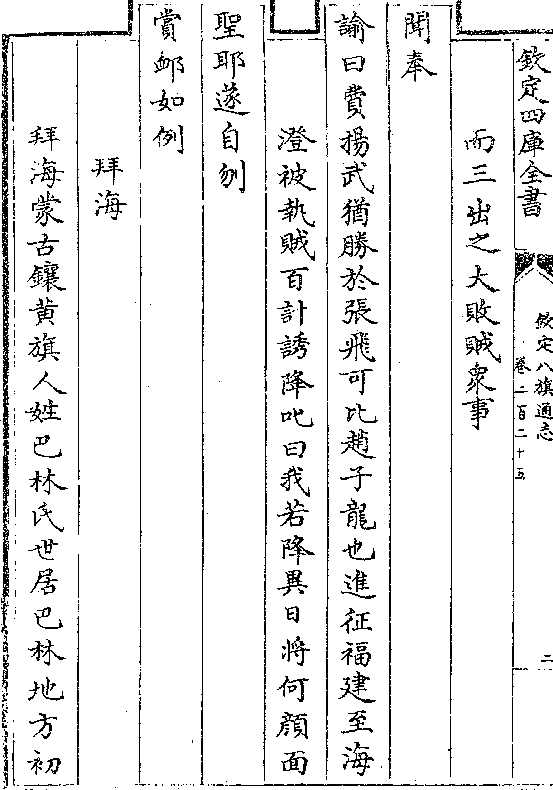 欽定四庫全書
欽定八旗通志
卷二百二十五
二
而三出之大敗賊衆事
聞奉
諭曰費揚武猶勝於張飛可比趙子龍也進征福建至海
澄被執賊百計誘降叱曰我若降異日將何顔面
聖耶遂自刎
賞䘏如例
拜海
拜海蒙古鑲黄旗人姓巴林氏世居巴林地方初